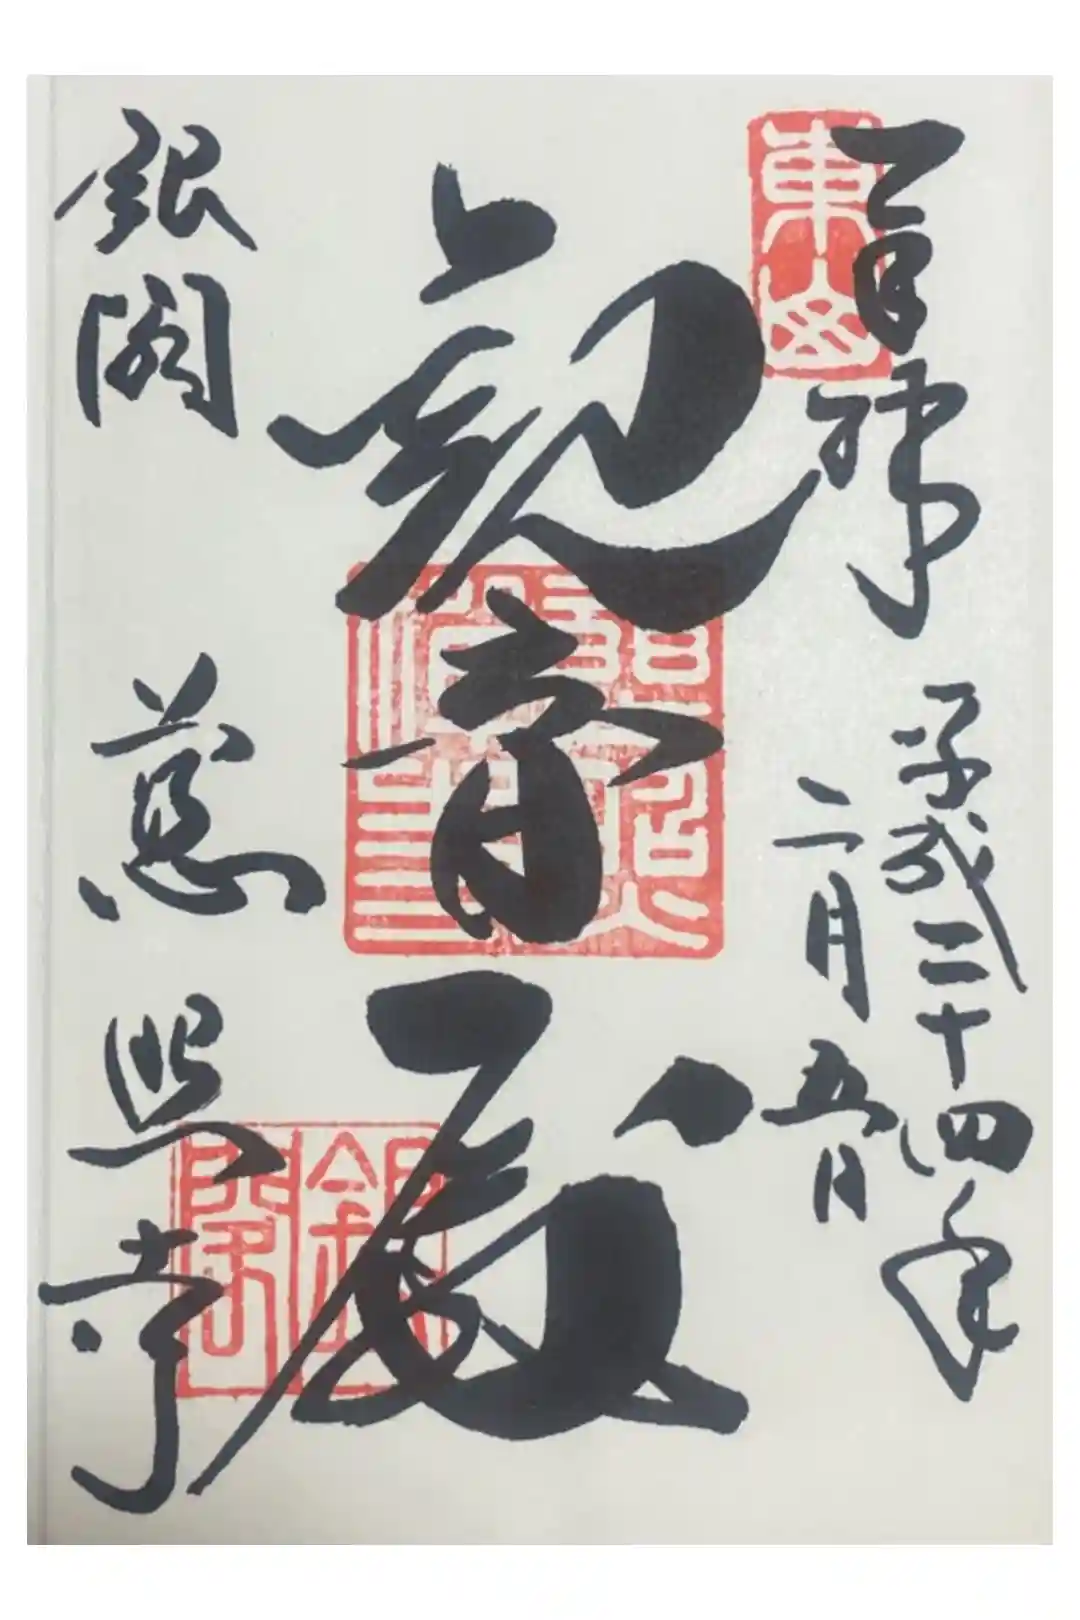 東山
百拝
平成二十四年
二月五日
観音殿
銀閣
銀閣 慈照寺